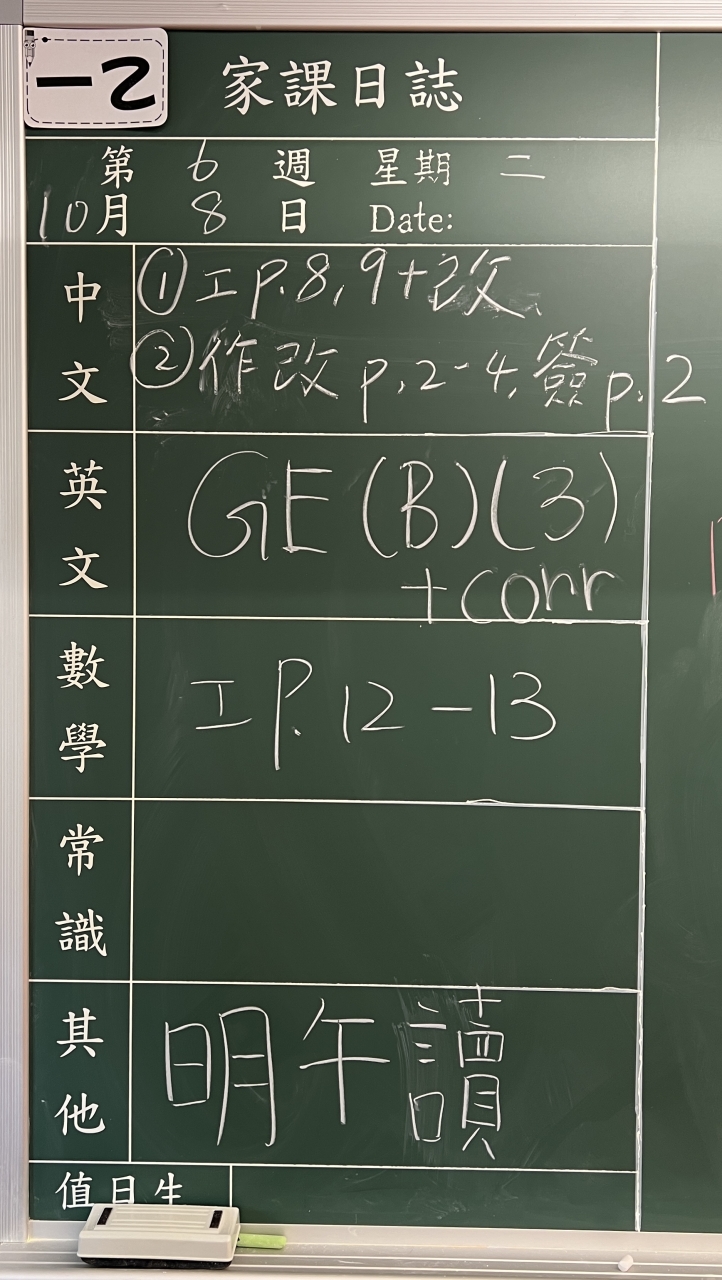 一乙
家課日誌
第 6 週 星期 二
10月 8 日 Date:
中文
①工p.8,9+改
②作改p.2-4,簽p.2
英文
GE(B)(3)
+corr
數學
工P.12-13
常識
其他
明午讀
值日生